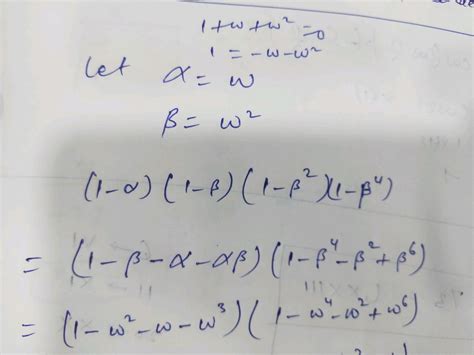 1+ω+ω²=0
1 = -ω-ω²
Let α = ω
β = ω²
(1-α) (1-β) (1-β²)(1-β⁴)
= (1-β-α-αβ) (1-β⁴-β²+β⁶)
= (1-ω²-ω-ω³) (1-ω⁴-ω²+ω⁶)